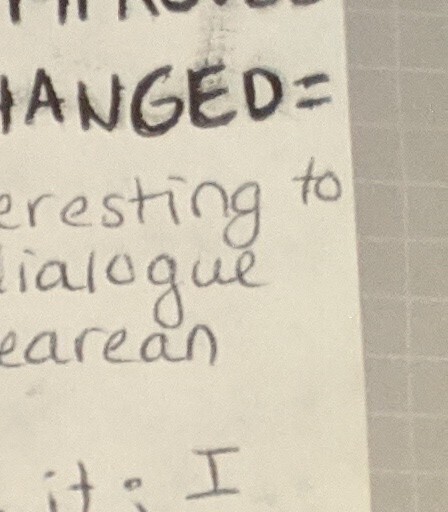 HANGED=
eresting to
dialogue
earean
it; I